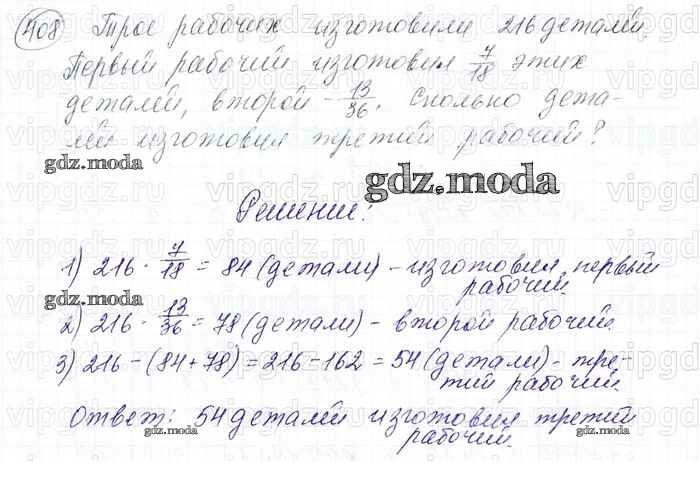 408 Трое рабочих изготовили 216 деталей.
Первый рабочий изготовил 7/18 этих
деталей, второй - 13/36. Сколько дета-
лей изготовил третий рабочий?
gdz.moda
gdz.moda
Решение:
1) 216 · 7/18 = 84 (детали) - изготовил первый
рабочий.
gdz.moda
2) 216 · 13/36 = 78 (детали) - второй рабочий.
3) 216 - (84 + 78) = 216 - 162 = 54 (детали) - тре-
тий рабочий.
gdz.moda
Ответ: 54 деталей изготовил третий
рабочий.
gdz.moda
gdz.moda